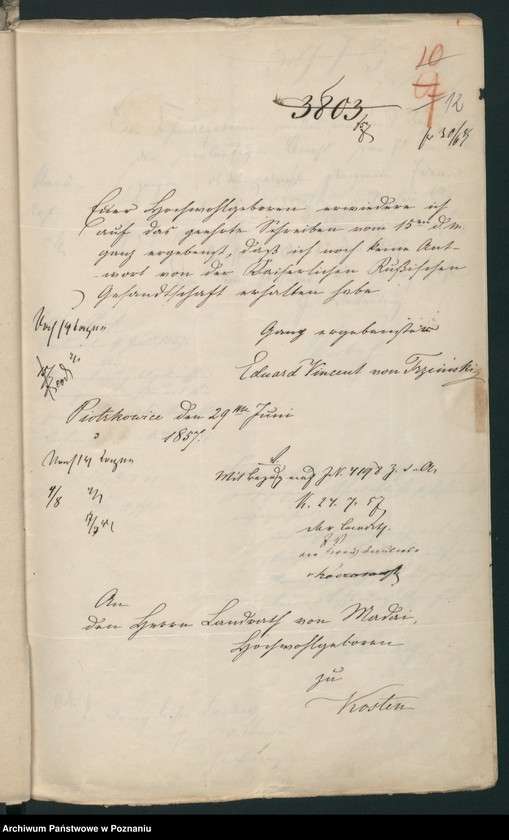 10
9
12
3803
p 30/6 57
Euer Hochwohlgeboren erwiedere ich
auf das geehrte Schreiben vom 15ten d. M.
ganz ergebenst, daß ich noch keine Ant-
-wort von der Kaiserlichen Rußischen
Gesandtschaft erhalten habe
Nach 14 Tagen
Ganz ergebenster
Eduard Vincent von
Piotrkowice den 29ten Juni
1857.
Nach 14 Tagen
4/8
K. 24. 7. 57
der Landrath
An
den Herrn Landrath von Madai,
Hochwohlgeboren
zu
Kosten
Archiwum Państwowe w Poznaniu